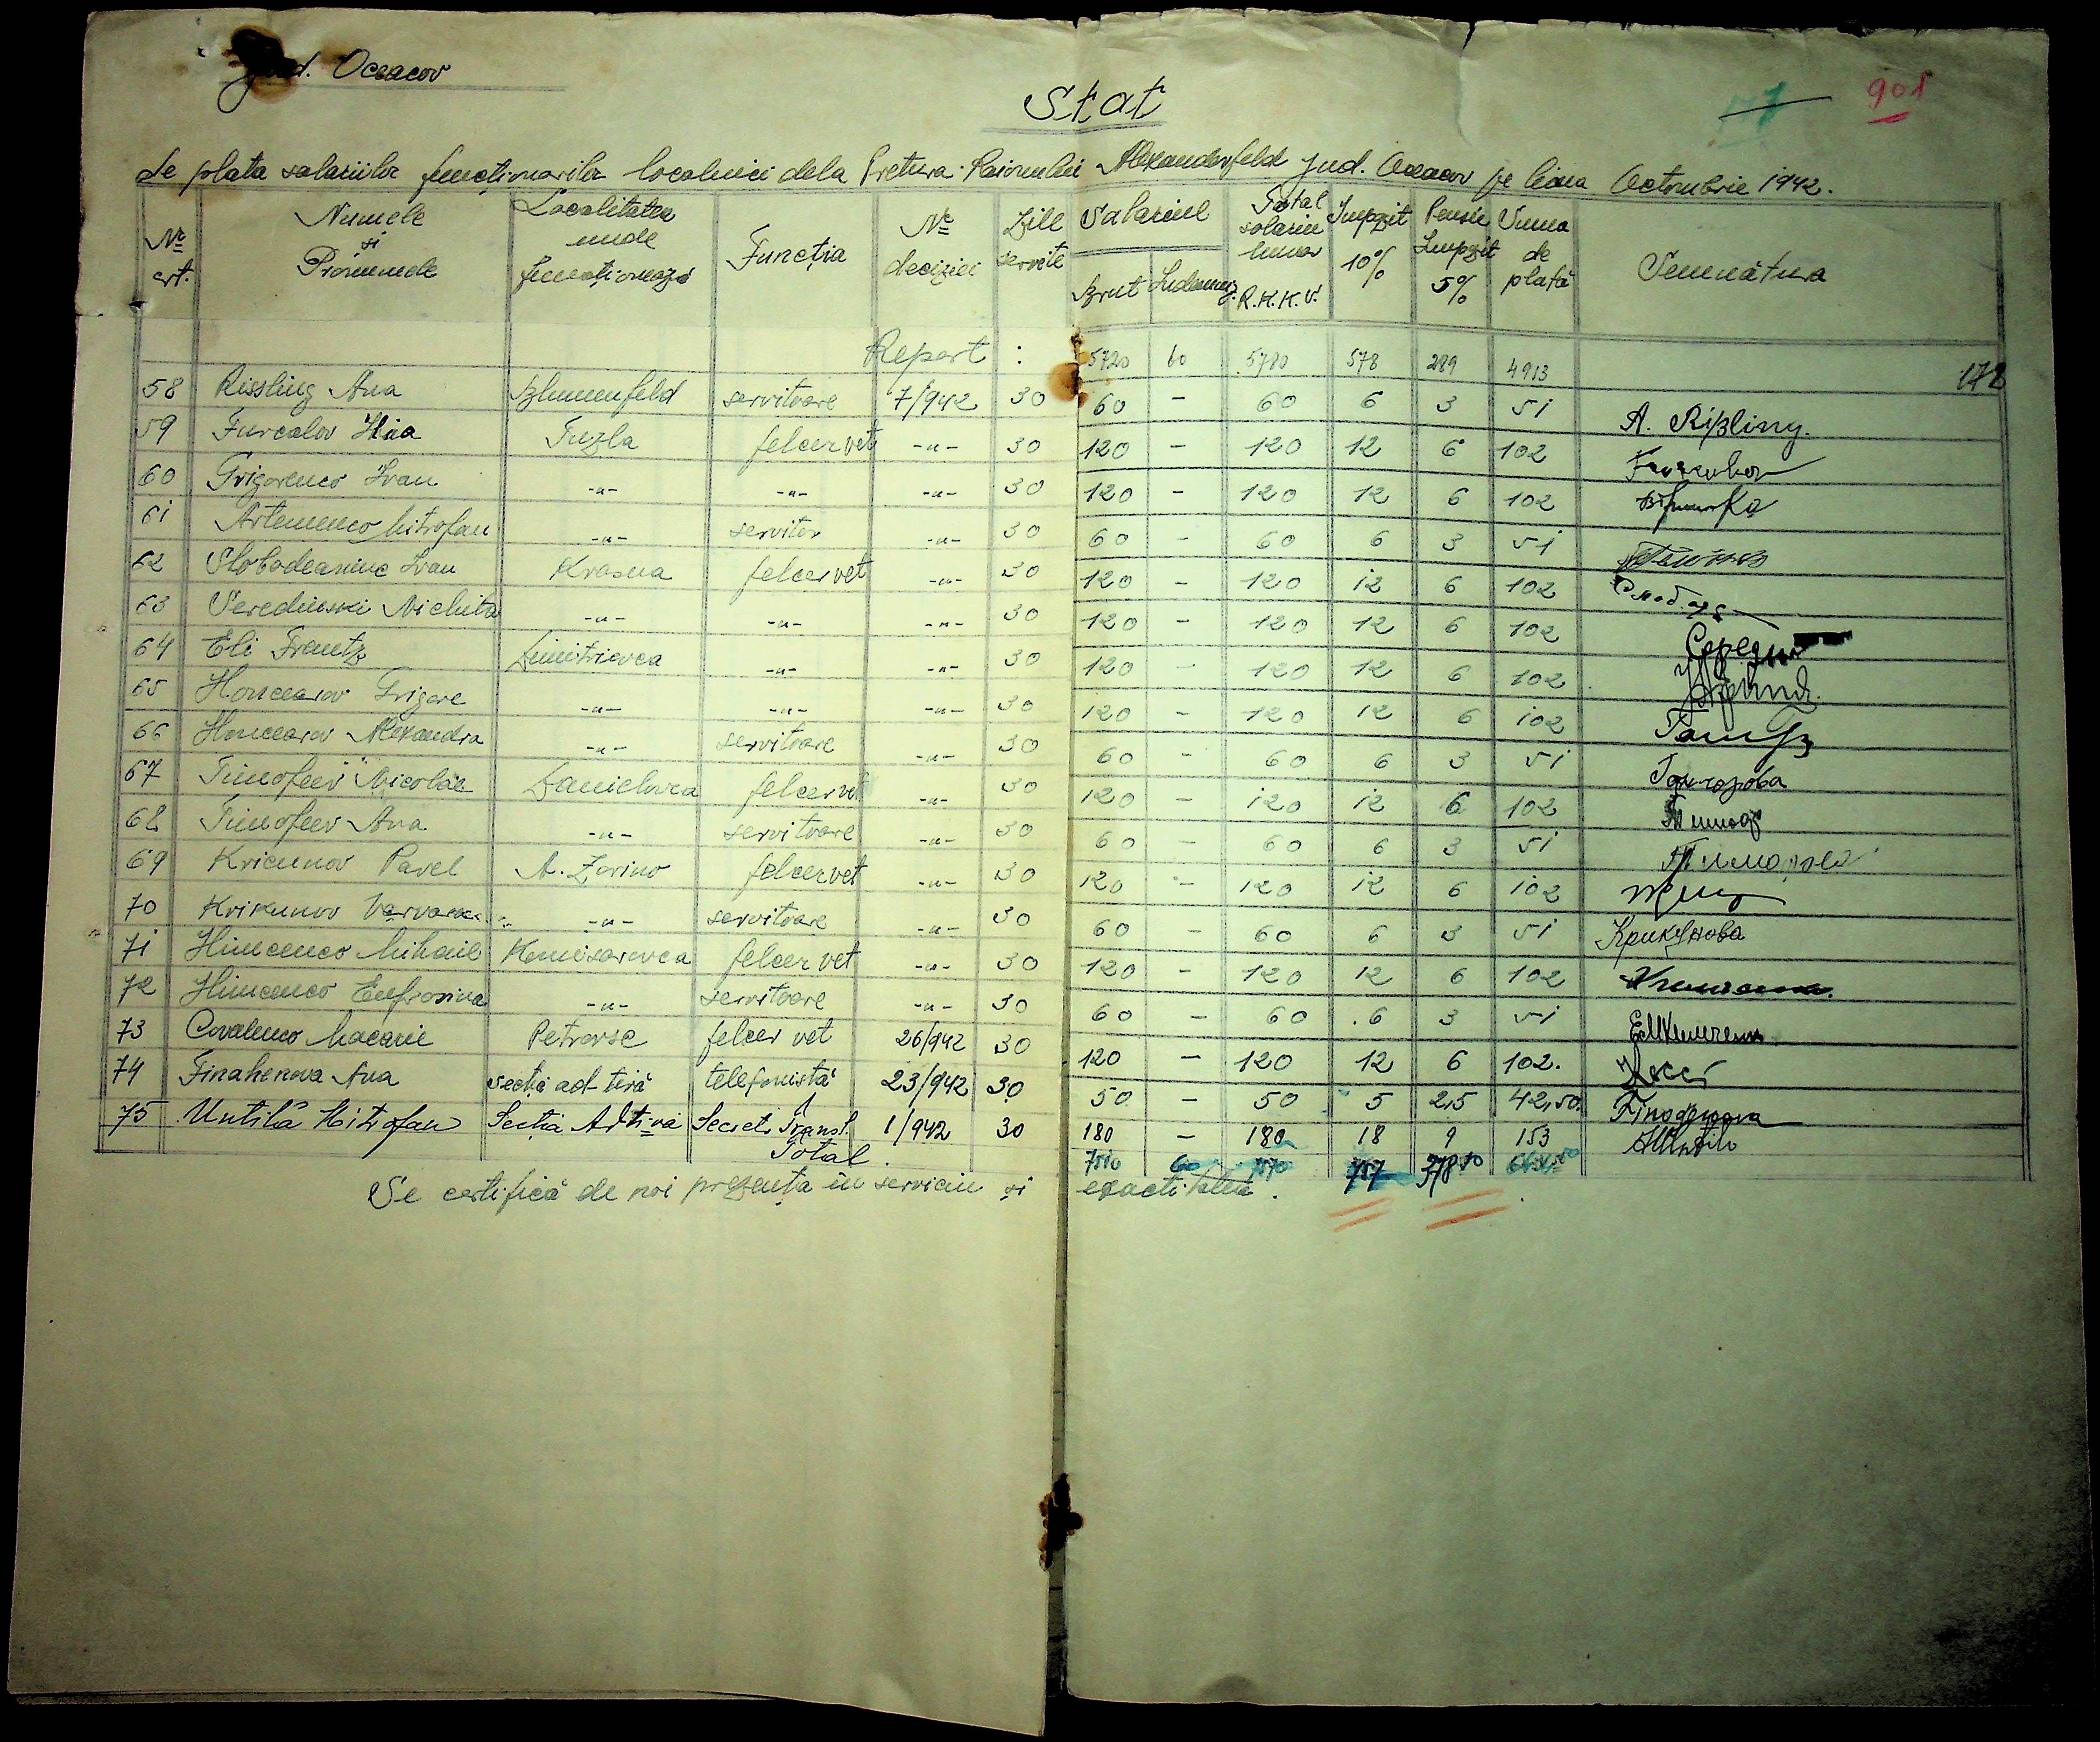 Jud. Oceacov
901
Stat
de plata salariilor funcționarilor localnici dela Pretura Raionului Alexanderfeld Jud. Oceacov pe luna Octombrie 1942.
Nr. crt. Numele și Pronumele Localitatea unde funcționează Funcția Nr. deciziei Zile servite Salariul Brut Indemniz. Total salariu lunar R.K.K.S. Impozit 10% Pensie Impozit 5% Suma de plată Semnătura
Report : 5720 60 5780 578 289 4913
178
58 Rissling Ana Blumenfeld servitoare 7/942 30 60 - 60 6 3 51 A. Rißling.
59 Furcalov Ilia Tuzla felcer vet -"- 30 120 - 120 12 6 102
60 Grigorenco Ivan -"- -"- -"- 30 120 - 120 12 6 102
61 Artemenco Mitrofan -"- servitor -"- 30 60 - 60 6 3 51
62 Slobodeaniuc Ivan Krasna felcer vet -"- 30 120 - 120 12 6 102
63 Seredinski Nichita -"- -"- -"- 30 120 - 120 12 6 102
64 Eli Frantz Dimitrievca -"- -"- 30 120 - 120 12 6 102
65 Honcearov Grigore -"- -"- -"- 30 120 - 120 12 6 102
66 Honcearov Alexandra -"- servitoare -"- 30 60 - 60 6 3 51 Гончарова
67 Timofeev Nicolae Danielovca felcer vet -"- 30 120 - 120 12 6 102
68 Timofeev Ana -"- servitoare -"- 30 60 - 60 6 3 51
69 Kricunov Pavel A. Zorino felcer vet -"- 30 120 - 120 12 6 102
70 Krikunov Varvara -"- servitoare -"- 30 60 - 60 6 3 51 Крикунова
71 Himcenco Mihail Komisarovca felcer vet -"- 30 120 - 120 12 6 102
72 Himcenco Eufrosina -"- servitoare -"- 30 60 - 60 6 3 51
73 Covalenco Macarie Petrovsc felcer vet 26/942 30 120 - 120 12 6 102.
74 Finahenova Ana secția ad-tivă telefonistă 23/942 30 50 - 50 5 2,5 42,50.
75 Untilă Mitrofan Secția Ad-tivă Secret. Transl. 1/942 30 180 - 180 18 9 153
Total. 7510 60 7570 757 378 50 6434 50
Se certifică de noi prezența în serviciu și exactitatea.